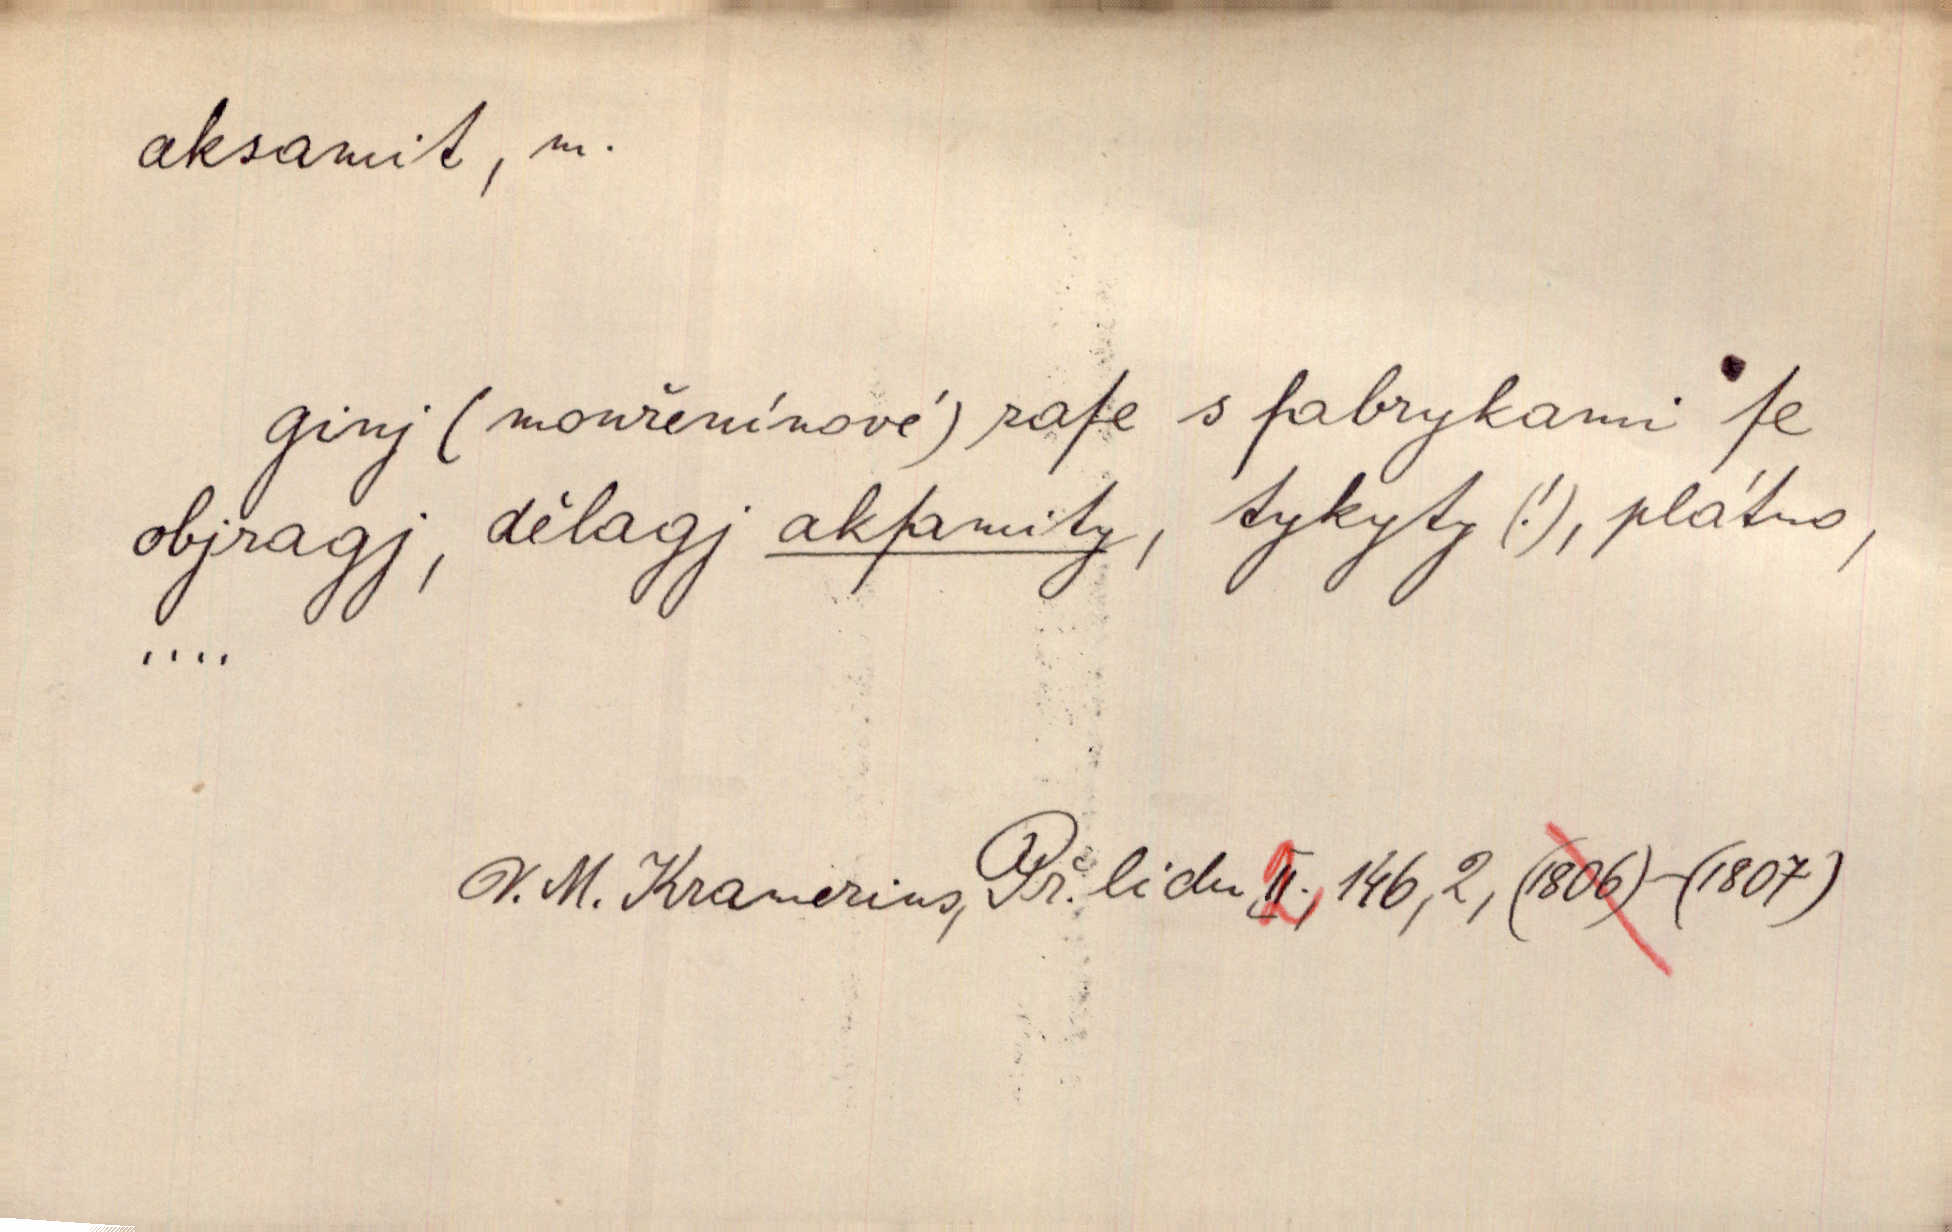 aksamit, m.
ginj (mouřenínové) zaſe s fabrykami ſe
objragj, dělagj akſamity, tykyty (!), plátno,
....
V. M. Kramerius, Př. lidu II., 2 146, 2, (1806)-(1807)